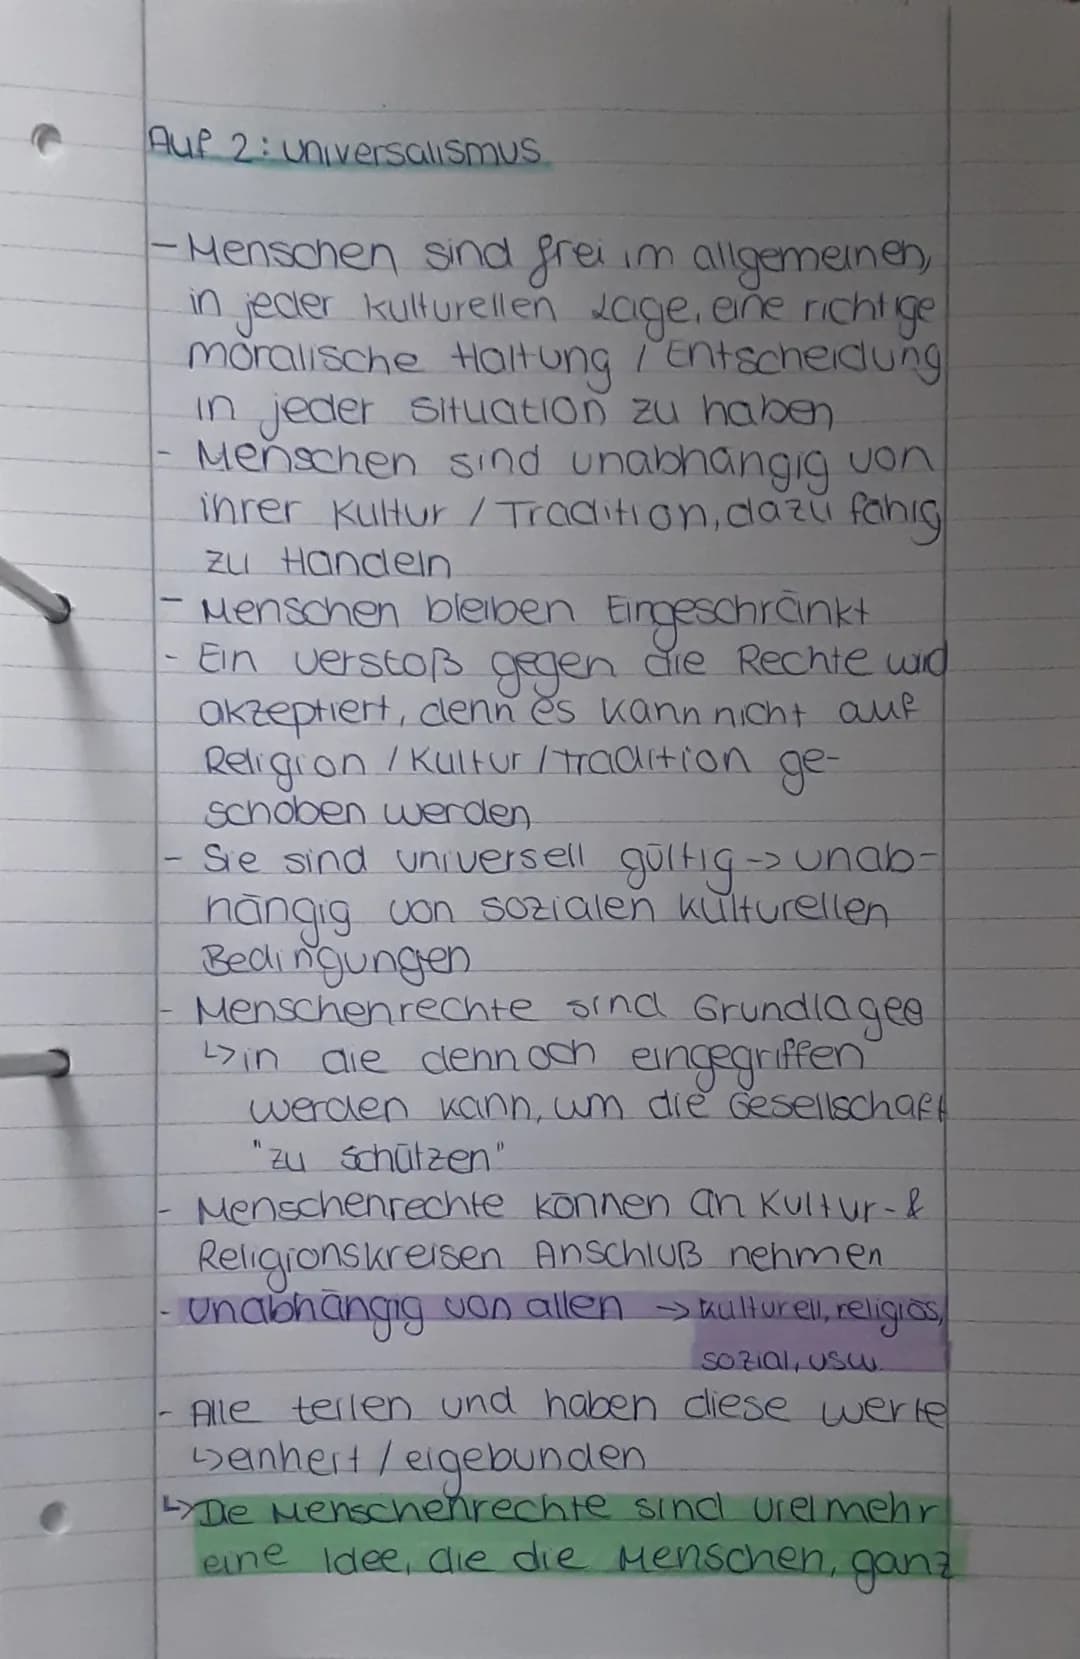 Auf 2: Universalismus
- Menschen sind frei im allgemeinen,
in jeder kulturellen Lage, eine richtige
moralische Haltung / Entscheidung
in jeder Situation zu haben
- Menschen sind unabhängig von
ihrer Kultur / Tradition, dazu fähig
zu Handeln
- Menschen bleiben Eingeschränkt
- Ein verstoß gegen die Rechte wird
akzeptiert, denn es kann nicht auf
Religion / Kultur / Tradition ge-
schoben werden
- Sie sind universell gültig -> unab-
hängig von sozialen kulturellen
Bedingungen
- Menschenrechte sind Grundlagee
↳ in die dennoch eingegriffen
werden kann, um die Gesellschaft
"zu schützen"
- Menschenrechte können an Kultur- &
Religionskreisen Anschluß nehmen
- unabhängig von allen -> kulturell, religiös,
sozial, usw.
- Alle teilen und haben diese werte
↳ einheit / eigebunden
↳ Die Menschenrechte sind vielmehr
eine Idee, die die Menschen, ganz